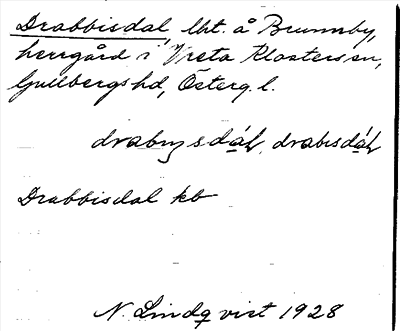 Drabbisdal, lht. å Brunnby,
herrgård i Vreta Klosters sn,
Gullbergs hd, Österg. l.
drabısdáɫ,
Drabbisdal kb
N. Lindqvist 1928